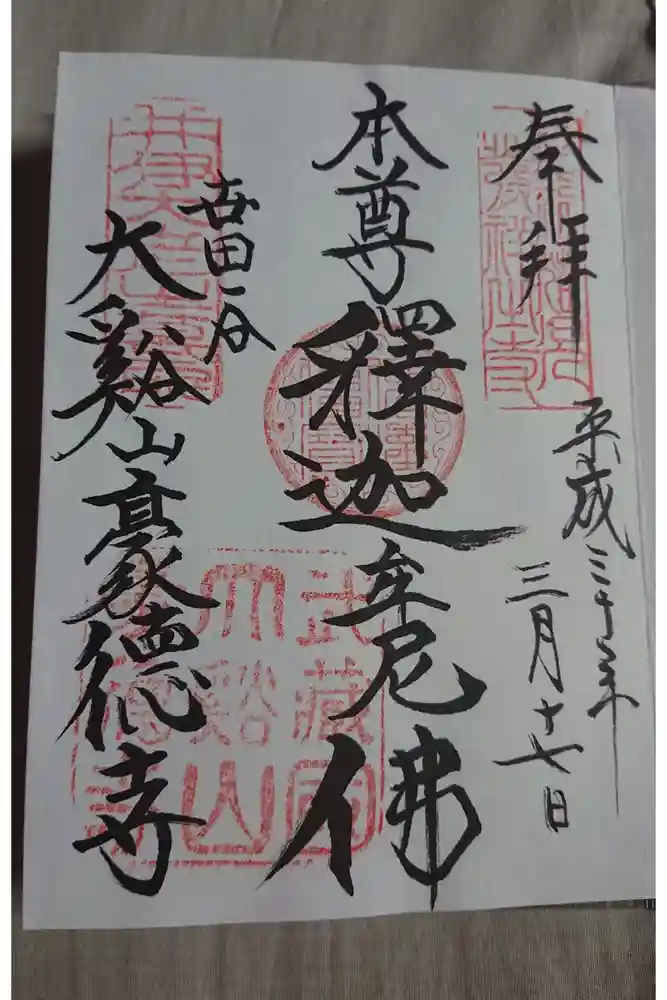 奉拝
平成三十年
三月十七日
本尊釋迦牟尼佛
世田谷
大谿山豪德寺
武藏國
大谿山
豪德寺